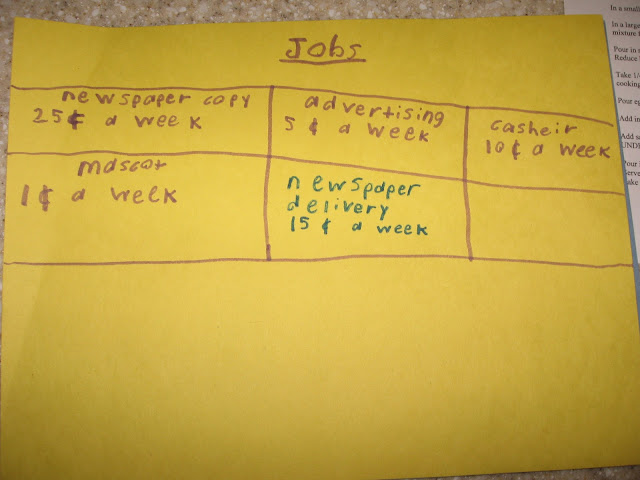 Jobs
newspaper copy
25¢ a week
advertising
5¢ a week
casheir
10¢ a week
mascot
1¢ a week
newspaper
delivery
15¢ a week
In a small
In a large
mixture
Pour in
Reduce
Take 1/
cooking
Pour
Add in
Add
UNDE
Pour